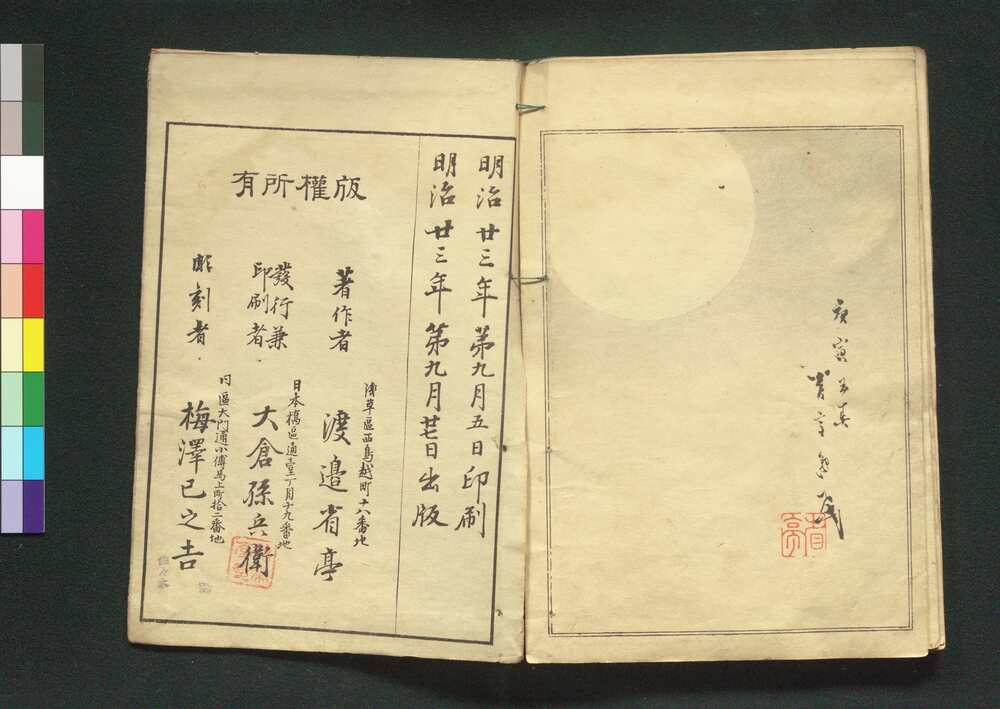 庚寅
省亭
明治廿三年第九月五日印刷
明治廿三年第九月廿七日出版
版權所有
著作者
淺草區西鳥越町十八番地
渡邉省亭
發行兼
印刷者
日本橋區通壹丁目十九番地
大倉孫兵衛
彫刻者
同區大門通小傳馬上町拾二番地
梅澤巳之吉